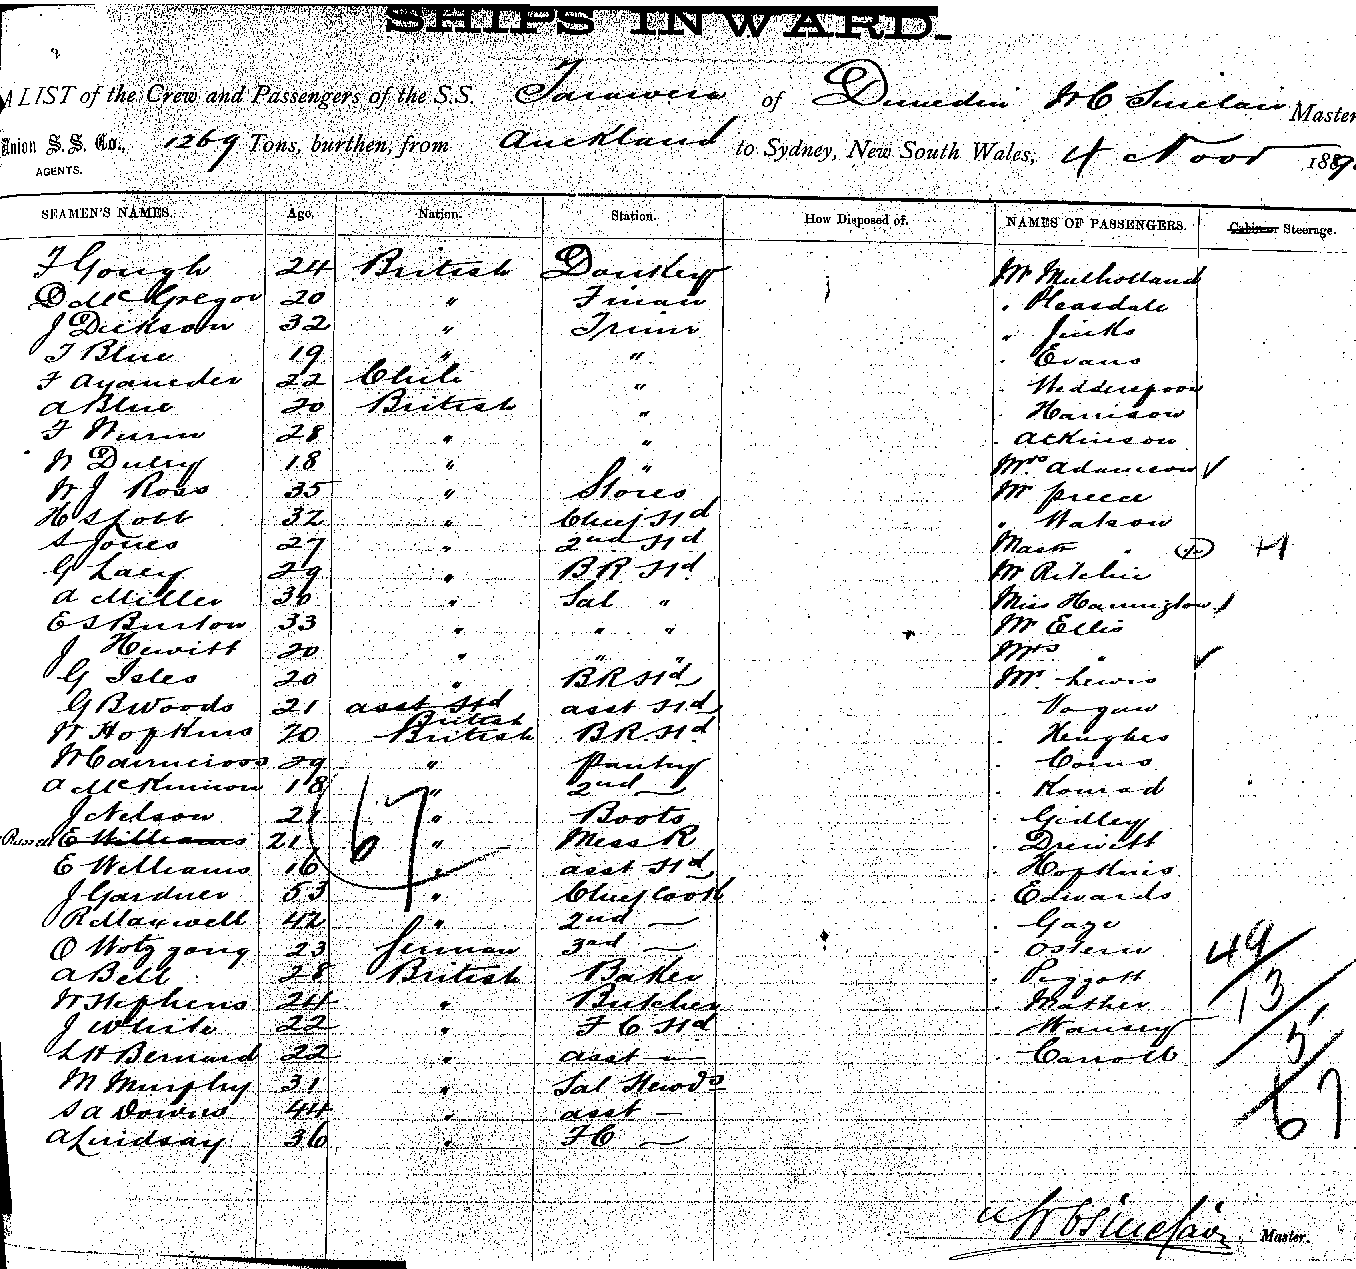 SHIPS INWARD.
A LIST of the Crew and Passengers of the S.S. Tarawera of Dunedin W C Sinclair Master
Union S. S. Co., 1269 Tons, burthen, from Auckland to Sydney, New South Wales, 4 Novr 1889.
AGENTS.
SEAMEN'S NAMES. Age. Nation. Station. How Disposed of. NAMES OF PASSENGERS. Cabin or Steerage.
F Gough 24 British Donkey Mr Mulholland
D McGregor 20 " Fman " Pleasdale
J Dickson 32 " Trimr " Jinks
T Blue 19 " " " Evans
22 Chili " " Wedderspoon
A Blue 20 British " " Harrison
F 28 " " " Atkinson
W 18 " " Mrs Adamson
W J Ross 35 " Stores Mr Preece
H Scott 32 " Chief Std " Watson
S Jones 27 " 2nd Std Mastr " +1
G Lacy 29 " BR Std Mr Ritchie
A Miller 30 " Sal " Miss Hannington
E S Burton 33 " " " Mr Ellis
J Hewitt 20 " " " Mrs "
G Isles 20 " BR Std Mr Lewis
G B Woods 21 asst Std British asst Std
W Hopkins 20 British BR Std " Hughes
W Cairncross 29 " Pantry
A McKinnon 18 " 2nd — " Konrad
J Nelson 21 " Boots " Gidley
Russell E Williams 21 " Mess R " Drewitt
E Williams 16 " asst Std " Hopkins
J Gardner 53 " Chief Cook " Edwards
R Maxwell 42 " 2nd — " Gaze
O Wolfgang 23 German 3rd — " Ostern
A Bell 28 British Baker " Piggott
W Stephens 24 " Butcher " Mather
J White 22 " F C Std
L H Bernard 22 " asst — " Carroll
M Murphy 31 " Sal Stewds
S A Downs 44 " asst —
A Lindsay 36 " F C —
67
49
13
5
67
W C Sinclair Master.